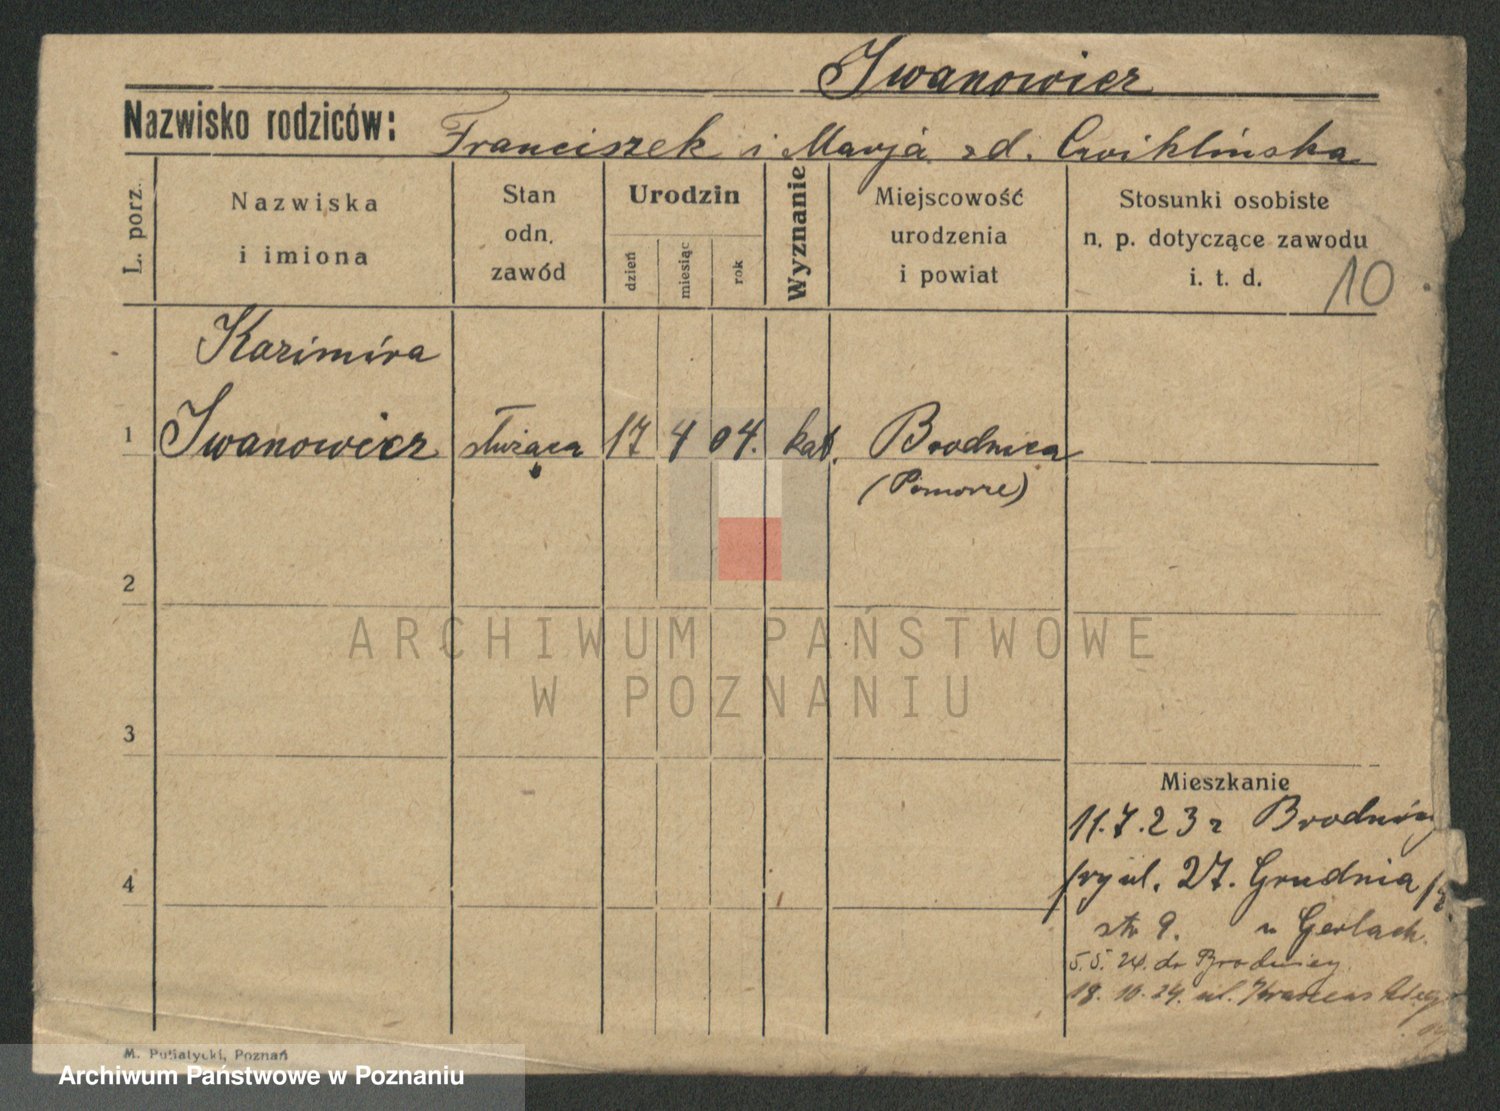 Iwanowicz
Nazwisko rodziców: Franciszek i Marja zd. Cwiklińska
L. porz.
Nazwiska
i imiona
Stan
odn.
zawód
Urodzin
dzień
miesiąc
rok
Wyznanie
Miejscowość
urodzenia
i powiat
Stosunki osobiste
n. p. dotyczące zawodu
i. t. d.
10
Kazimira
1 Iwanowicz służąca 17 4 04. kat. Brodnica
(Pomorze)
2
ARCHIWUM PAŃSTWOWE
W POZNANIU
3
Mieszkanie
11.7.23 z Brodnicy
4
ul. 27. Grudnia
9. u Gerlach.
5.5.24. do Brodnicy
18. 10. 24. ul.
M. Putiatycki, Poznań
Archiwum Państwowe w Poznaniu